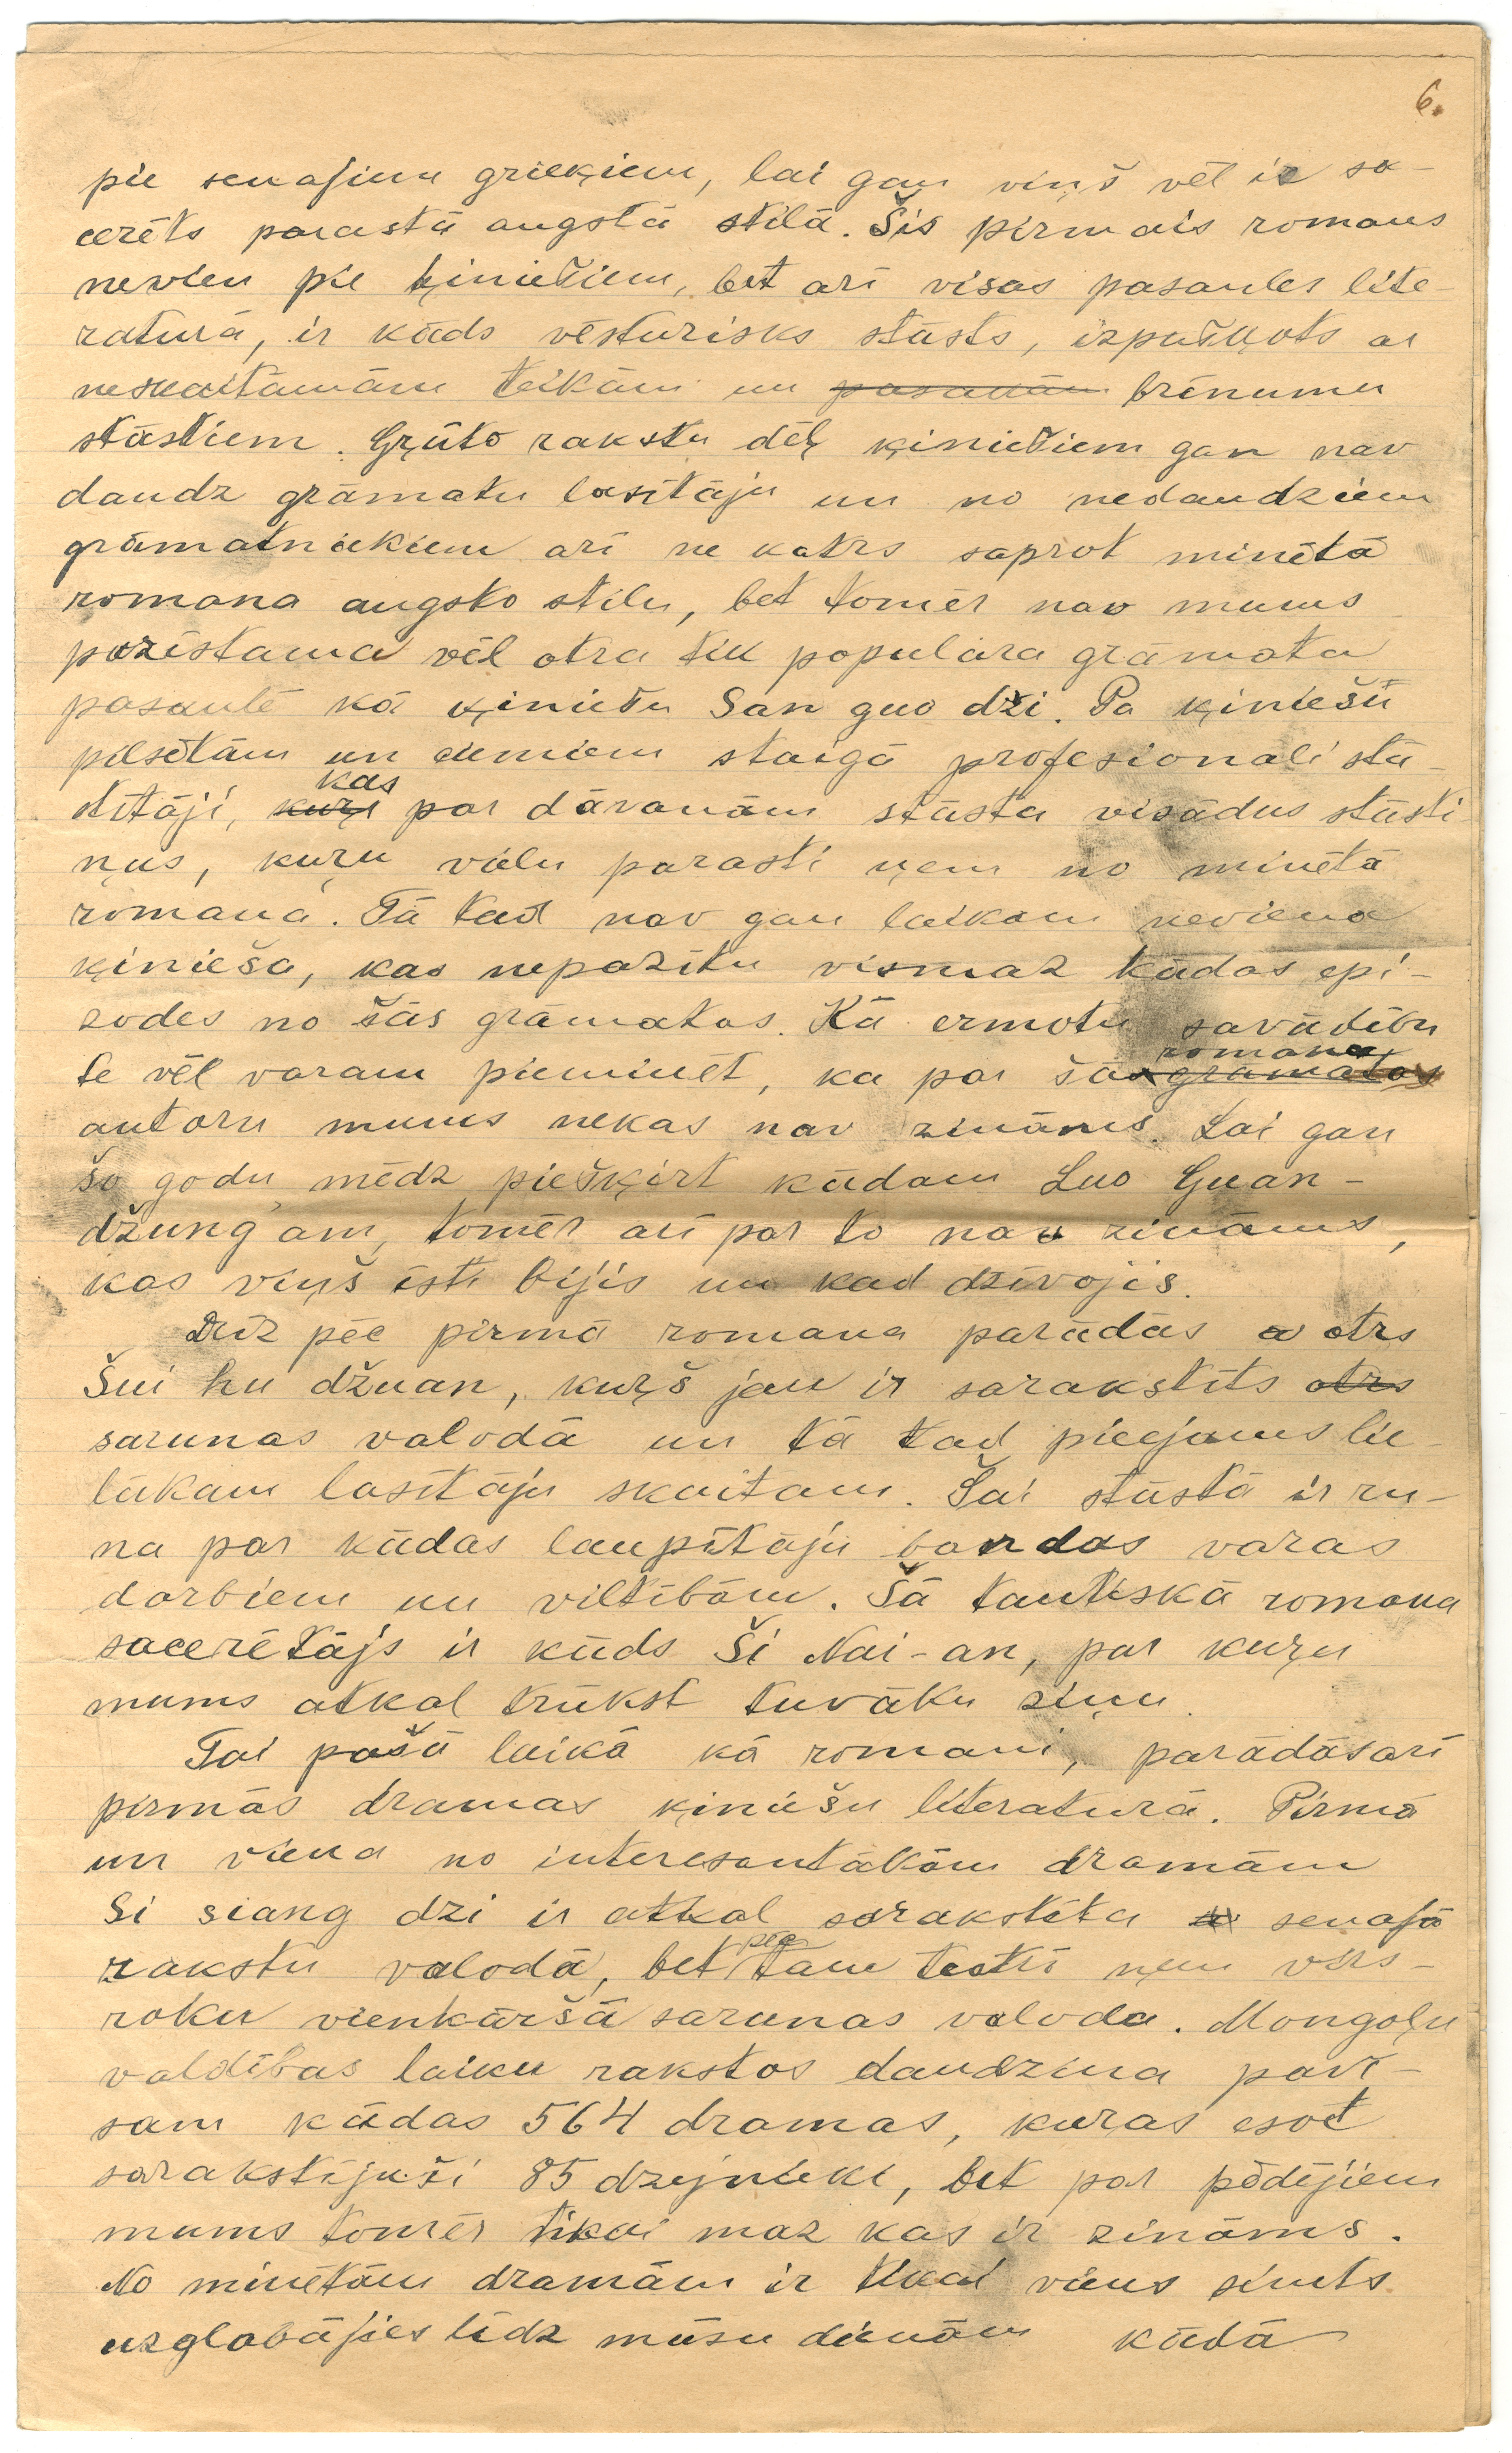 6.
pie senajiem grieķiem, lai gan viņš vēl ir sa-
cerēts parastā augstā stilā. Šis pirmais romans
nevien pie ķiniešiem, bet arī visas pasaules lite-
ratūrā, ir kāds vēsturisks stāsts, izpušķots ar
neskaitāmām teikām un pasakām brīnumu
stāstiem. Grūto rakstu dēļ ķiniešiem gan nav
daudz grāmatu lasītāju un no nedaudziem
grāmatniekiem arī ne katrs saprot minētā
romana augsto stilu, bet tomēr nav mums
pazīstama vēl otra tik populāra grāmata
pasaulē kā ķiniešu San guo dži. Pa ķiniešu
pilsētām un ciemiem staigā profesionali stā-
stītāji, kuri kas par dāvanām stāsta visādus stāsti
ņus, kuru vielu parasti ņem no minētā
romana. Tā tad nav gan laikam neviena
ķinieša, kas nepazītu vismaz kādas epi-
zodes no šās grāmatas. Kā ermotu savādību
te vēl varam pieminēt, ka par šā grāmatas romana
autoru mums nekas nav zināms. Lai gan
šo godu mēdz piešķirt kādam Luo Guan-
džung'am, tomēr arī par to nav zināms,
kas viņš īsti bijis un kad dzīvojis.
Drīz pēc pirmā romana parādās otrs
Šui hu džuan, kuŗš jau ir sarakstīts otrs
sarunas valodā un tā tad pieejams lie-
lākam lasītāju skaitam. Šai stāstā ir ru-
na par kādas laupītāju bandas varas
darbiem un viltībām. Šā tautiskā romana
sacerētājs ir kāds Ši Nai-an, par kuŗu
mums atkal trūkst tuvāku ziņu.
Tai pašā laikā kā romani, parādās arī
pirmās dramas ķiniešu literaturā. Pirmā
un viena no interesantākām dramām
Si siang dzi ir atkal sarakstīta senajā
rakstu valodā, bet pēc tam teksti ņem virs-
roku vienkāršā sarunas valoda. Mongoļu
valdības laiku rakstos daudzina pavi-
sam kādas 564 dramas, kuras esot
sarakstījuši 85 dzejnieki, bet par pēdējiem
mums tomēr tikai maz kas ir zināms.
No minētām dramām ir tikai viens simts
uzglabājies līdz mūsu dienām kādā